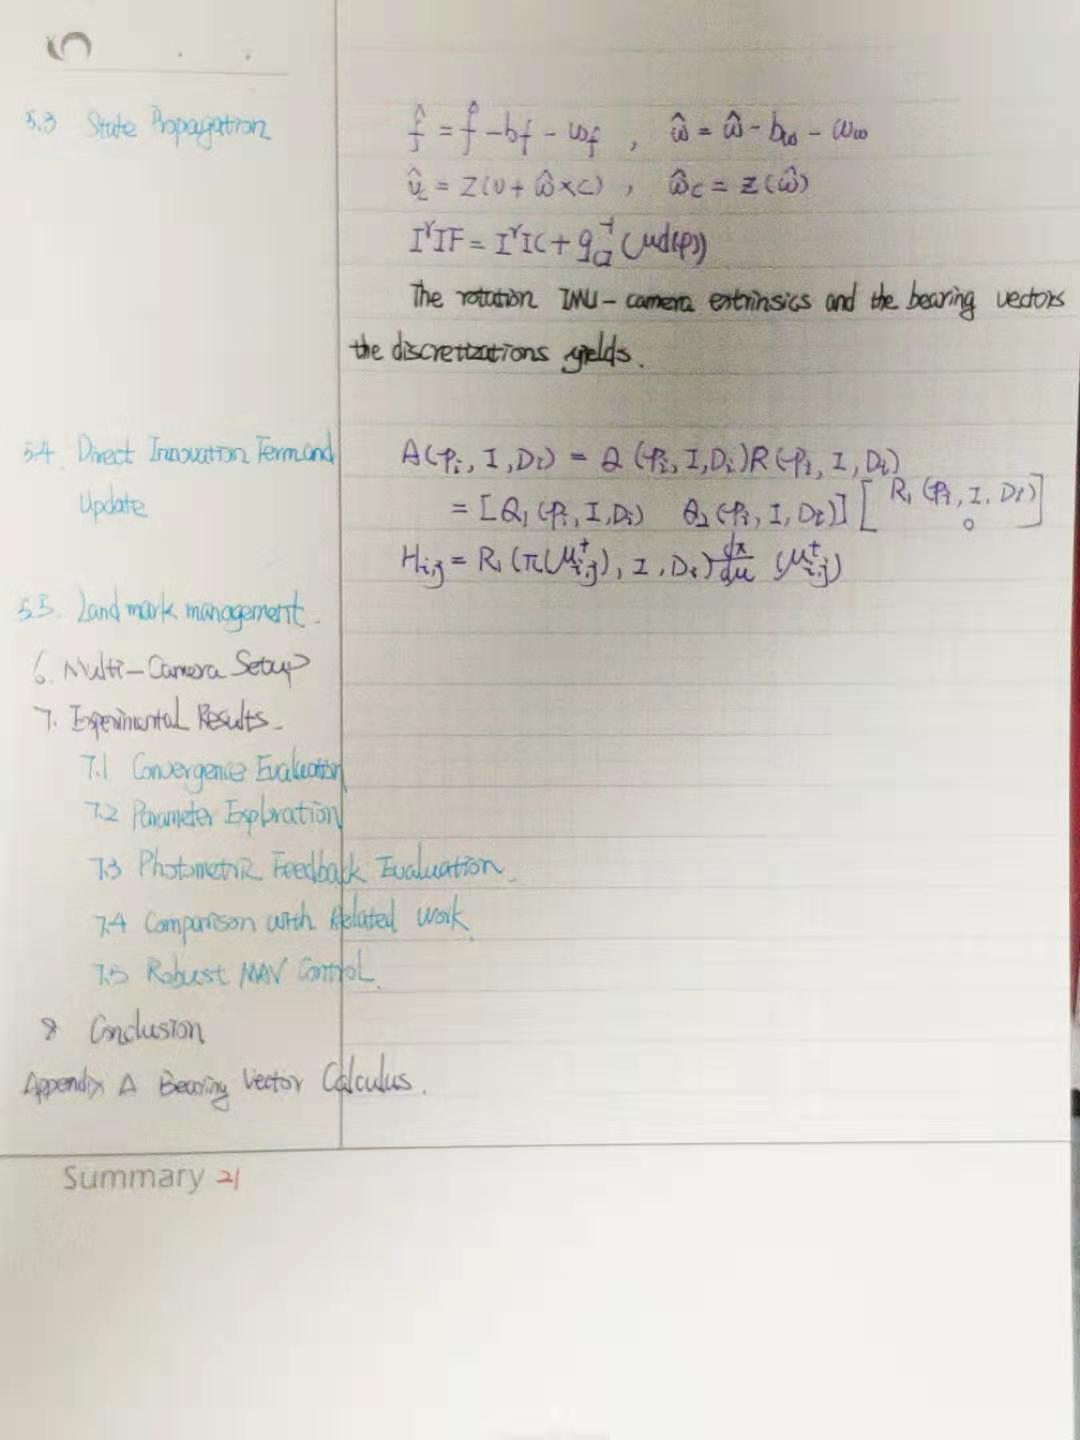 5
5.3 State Propagation
f̂ = f̂ - bf - wf , ω̂ = ω̂ - bω - ωω
û_c = Z(υ + ω̂ × c) , ω̂c = z(ω̂)
The rotation IMU - camera extrinsics and the bearing vectors
the discretizations yields.
5.4. Direct Innovation Term and
Update
A(Pi, I, Di) = Q (Pi, I, Di) R (Pi, I, Di)
= [Q1 (Pi, I, Di) Q2 (Pi, I, Di)] [R1 (Pi, I, Di)
0]
Hi,j = R1 (π(μ⁺i,j), I, Di) dπ/dμ (μ⁺i,j)
5.5. Landmark management.
6. Multi-Camera Setup
7. Experimental Results.
7.1 Convergence Evaluation
7.2 Parameter Exploration
7.3 Photometric Feedback Evaluation.
7.4 Comparison with Related Work.
7.5 Robust MAV Control.
8 Conclusion
Appendix A Bearing Vector Calculus.
Summary 21